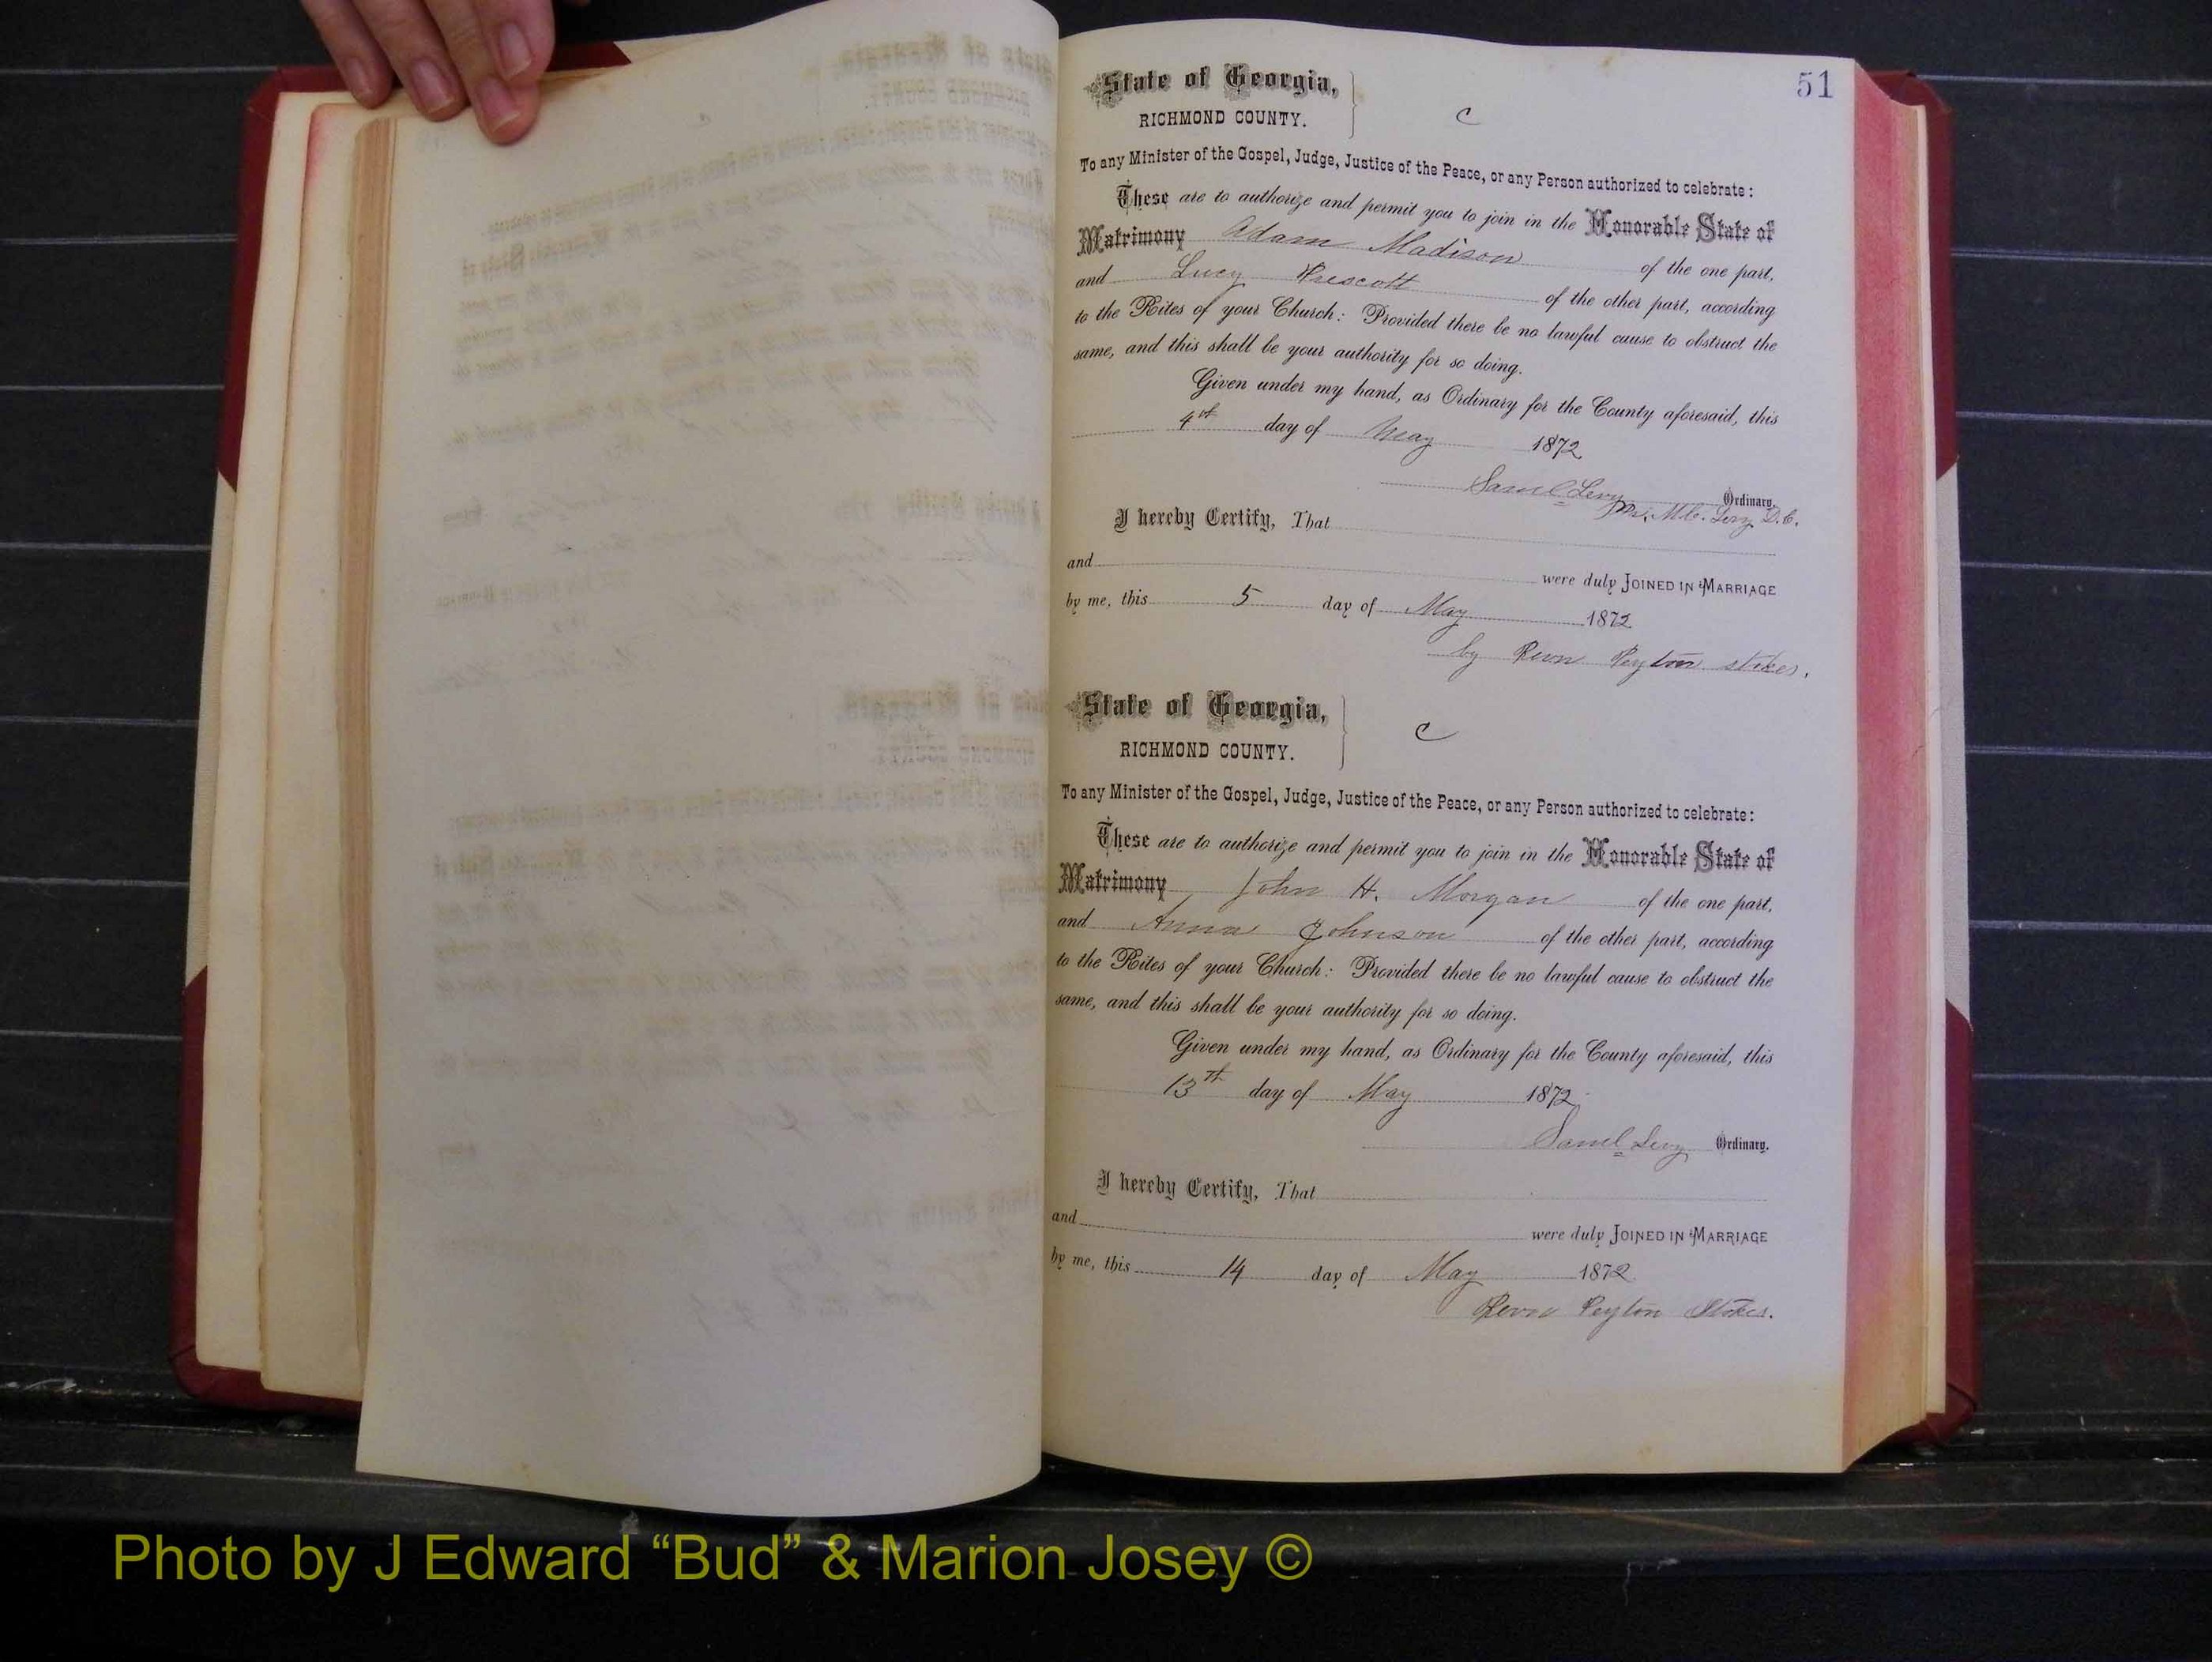 51
State of Georgia,
RICHMOND COUNTY.
C
To any Minister of the Gospel, Judge, Justice of the Peace, or any Person authorized to celebrate:
These are to authorize and permit you to join in the Honorable State of
Matrimony Adam Madison of the one part,
and Lucy Prescott of the other part, according
to the Rites of your Church: Provided there be no lawful cause to obstruct the
same, and this shall be your authority for so doing.
Given under my hand, as Ordinary for the County aforesaid, this
4th day of May 1872
Saml Levy Ordinary.
Pr. M.C. Levy D.C.
I hereby Certify, That
and were duly JOINED IN MARRIAGE
by me, this 5 day of May 1872
by Revn Peyton stokes.
State of Georgia,
RICHMOND COUNTY.
C
To any Minister of the Gospel, Judge, Justice of the Peace, or any Person authorized to celebrate:
These are to authorize and permit you to join in the Honorable State of
Matrimony John H. Morgan of the one part,
and Anna Johnson of the other part, according
to the Rites of your Church: Provided there be no lawful cause to obstruct the
same, and this shall be your authority for so doing.
Given under my hand, as Ordinary for the County aforesaid, this
13th day of May 1872
Saml Levy Ordinary.
I hereby Certify, That
and were duly JOINED IN MARRIAGE
by me, this 14 day of May 1872
Revn Peyton Stokes.
Photo by J Edward “Bud” & Marion Josey ©